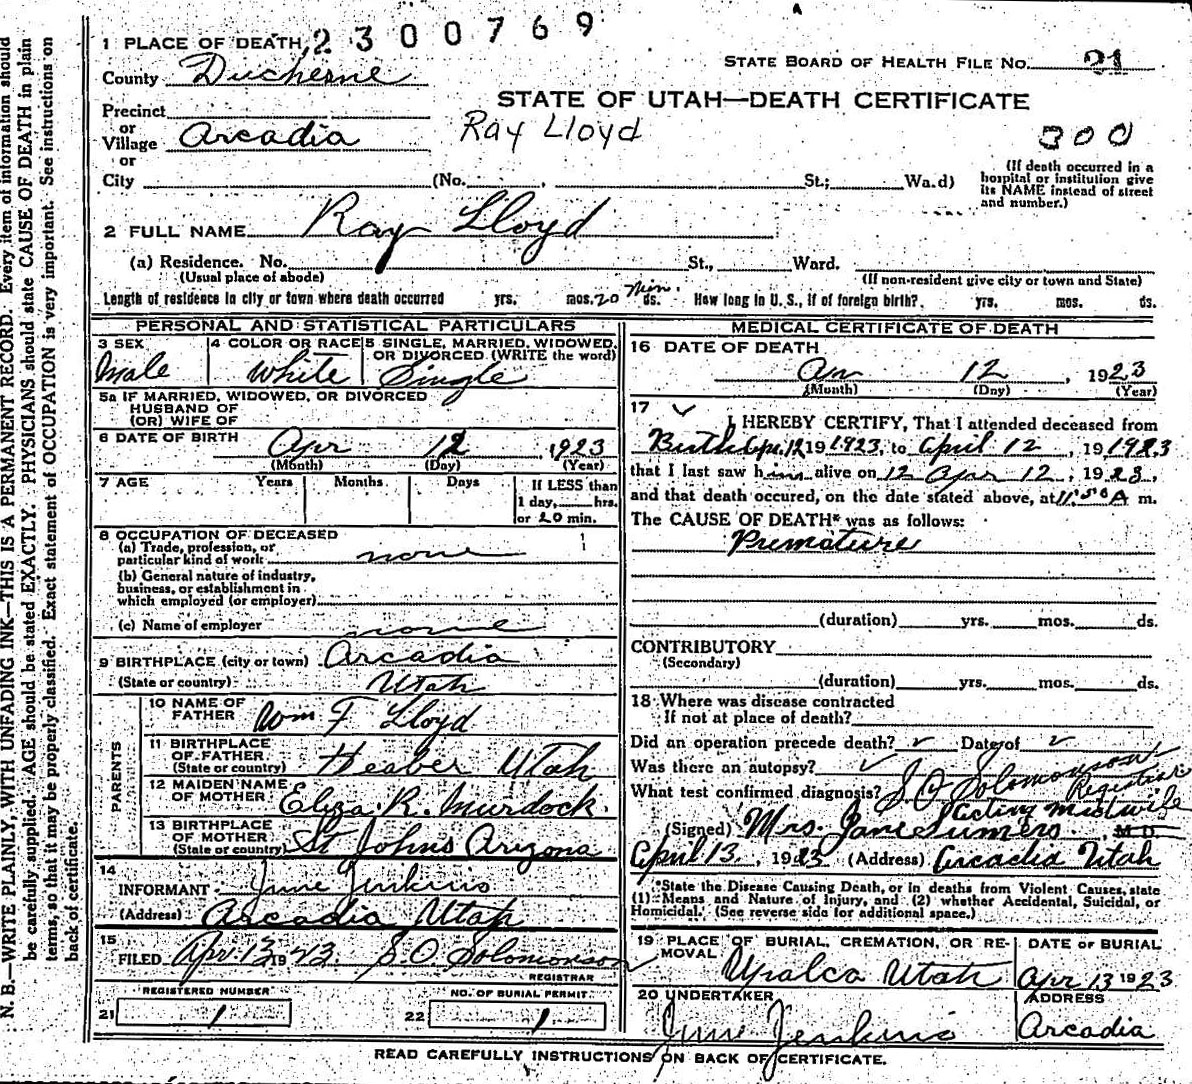 2300769
1 PLACE OF DEATH
STATE BOARD OF HEALTH FILE NO. 21
County Duchesne
STATE OF UTAH—DEATH CERTIFICATE
Precinct
or
Village Arcadia
Ray Lloyd
300
or
City (No. St.; Wa.d)
(If death occurred in a
hospital or institution give
its NAME instead of street
and number.)
2 FULL NAME Ray Lloyd
(a) Residence. No. St., Ward.
(Usual place of abode) (If non-resident give city or town and State)
Length of residence in city or town where death occurred yrs. mos. 20 min. ds. How long in U. S., if of foreign birth? yrs. mos. ds.
PERSONAL AND STATISTICAL PARTICULARS
3 SEX
Male
4 COLOR OR RACE
White
5 SINGLE, MARRIED, WIDOWED,
OR DIVORCED (WRITE the word)
Single
5a IF MARRIED, WIDOWED, OR DIVORCED
HUSBAND OF
(OR) WIFE OF
6 DATE OF BIRTH Apr 12 1923
(Month) (Day) (Year)
7 AGE Years Months Days If LESS than
1 day, hrs.
or 20 min.
8 OCCUPATION OF DECEASED
(a) Trade, profession, or
particular kind of work none
(b) General nature of industry,
business, or establishment in
which employed (or employer)
(c) Name of employer none
9 BIRTHPLACE (city or town) Arcadia
(State or country) Utah
PARENTS
10 NAME OF
FATHER Wm F Lloyd
11 BIRTHPLACE
OF FATHER
(State or country) Heaber Utah
12 MAIDEN NAME
OF MOTHER Eliza R. Murdock.
13 BIRTHPLACE
OF MOTHER
(State or country) St Johns Arizona
14
INFORMANT June Jenkins
(Address) Arcadia Utah
15
FILED Apr 13 1923. S.O Solomonson
REGISTRAR
REGISTERED NUMBER
21 1
NO. OF BURIAL PERMIT
22 1
MEDICAL CERTIFICATE OF DEATH
16 DATE OF DEATH
12, 1923
(Month) (Day) (Year)
17 I HEREBY CERTIFY, That I attended deceased from
Birth Apr. 12 19 1923, to April 12, 19 1923
that I last saw him alive on 12 Apr 12, 1923,
and that death occured, on the date stated above, at 11:50 A m.
The CAUSE OF DEATH* was as follows:
Premature
(duration) yrs. mos. ds.
CONTRIBUTORY
(Secondary)
(duration) yrs. mos. ds.
18 Where was disease contracted
If not at place of death?
Did an operation precede death? Date of
Was there an autopsy?
What test confirmed diagnosis? S.O Solomonson
Registrar
Acting Midwife
(Signed) Mrs. Jane Sumers, M.D.
April 13, 1923 (Address) Arcadia Utah
*State the Disease Causing Death, or in deaths from Violent Causes, state
(1) Means and Nature of Injury, and (2) whether Accidental, Suicidal, or
Homicidal. (See reverse side for additional space.)
19 PLACE OF BURIAL, CREMATION, OR RE-
MOVAL Upalco Utah
DATE OF BURIAL
Apr 13 1923
20 UNDERTAKER
June Jenkins
ADDRESS
Arcadia
READ CAREFULLY INSTRUCTIONS ON BACK OF CERTIFICATE.
N. B.—WRITE PLAINLY, WITH UNFADING INK—THIS IS A PERMANENT RECORD. Every item of information should
be carefully supplied. AGE should be stated EXACTLY. PHYSICIANS should state CAUSE OF DEATH in plain
terms, so that it may be properly classified. Exact statement of OCCUPATION is very important. See instructions on
back of certificate.